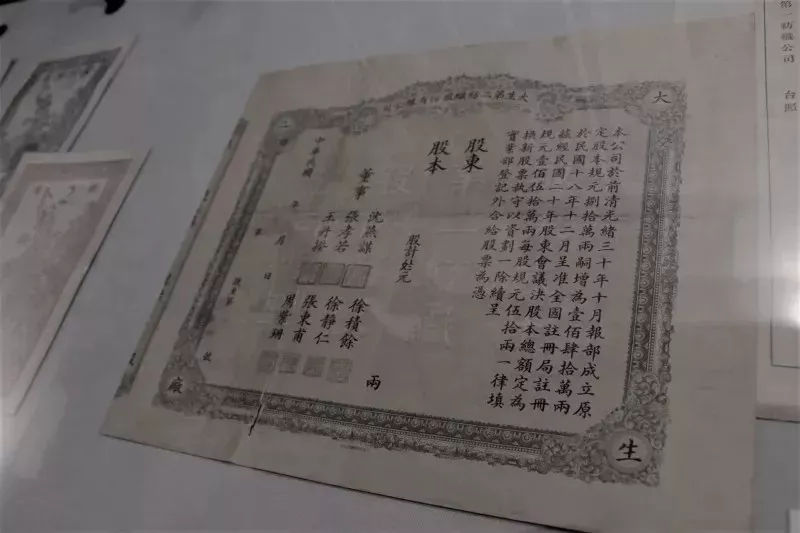 第一紡織公司 台照
大生第二紡織股份有限公司
大
生
二
廠
本公司於前清光緒三十年十月報部成立原
定股本規元捌拾萬兩嗣增為壹佰肆拾萬兩
於民國十八年十二月呈准全國註冊局註冊
茲經民國二十年股東會議決股本總額定為
規元壹佰伍拾萬兩每股規元伍拾兩一律填
換新股票執守以資劃一除續呈
實業部登記外合給股票為憑
股東
股本
股計規元 兩
董事
沈燕謀
張孝若
王丹揆
徐積餘
徐靜仁
張東甫
周紫珊
中華民國 年 月 日
號